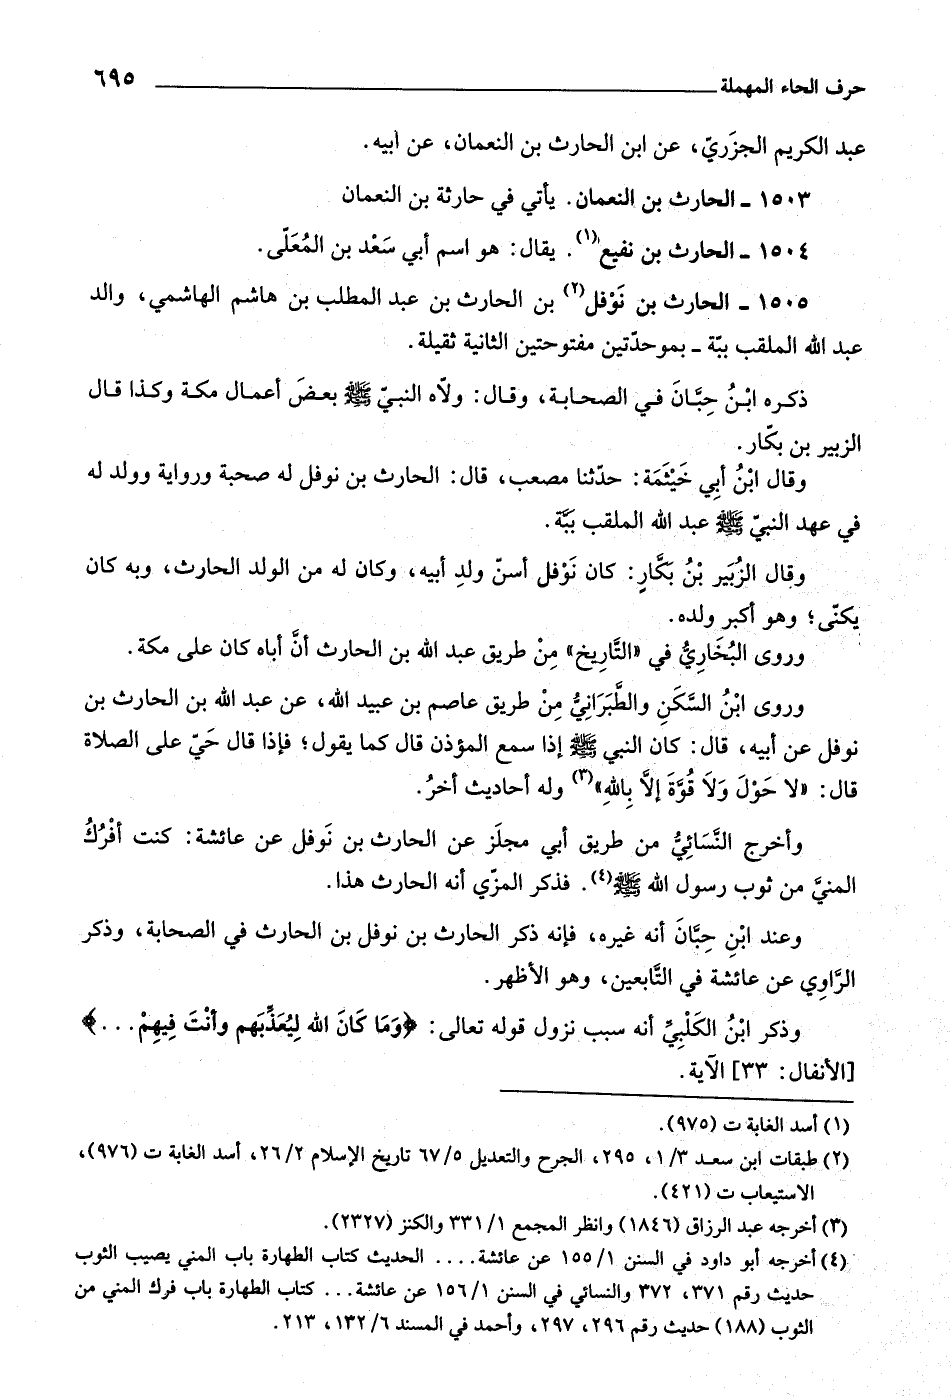 حرف الحاء المهملة ٦٩٥
عبد الكريم الجزَريّ، عن ابن الحارث بن النعمان، عن أبيه.
١٥٠٣ ـ الحارث بن النعمان. يأتي في حارثة بن النعمان
١٥٠٤ ـ الحارث بن نفيع(١). يقال: هو اسم أبي سَعْد بن المُعَلّى.
١٥٠٥ ـ الحارث بن نَوْفل(٢) بن الحارث بن عبد المطلب بن هاشم الهاشمي، والد
عبد الله الملقب ببّة ـ بموحدّتين مفتوحتين الثانية ثقيلة.
ذكره ابْنُ حِبَّانَ في الصحابة، وقال: ولاّه النبيّ ﷺ بعضَ أعمال مكة وكذا قال
الزبير بن بكّار.
وقال ابْنُ أبي خَيْثَمَة: حدّثنا مصعب، قال: الحارث بن نوفل له صحبة ورواية وولد له
في عهد النبيّ ﷺ عبد الله الملقب بَبَّة.
وقال الزُبَير بْنُ بَكَّارٍ: كان نَوْفل أسنّ ولدِ أبيه، وكان له من الولد الحارث، وبه كان
يكنّى؛ وهو أكبر ولده.
وروى البُخَارِيُّ في «التَّاريخ» مِنْ طريق عبد الله بن الحارث أنَّ أباه كان على مكة.
وروى ابْنُ السَّكَنِ والطَّبَرَانِيُّ مِنْ طريق عاصم بن عبيد الله، عن عبد الله بن الحارث بن
نوفل عن أبيه، قال: كان النبي ﷺ إذا سمع المؤذن قال كما يقول؛ فإذا قال حَيّ على الصلاة
قال: «لا حَوْلَ وَلاَ قُوَّةَ إلاَّ بِاللهِ»(٣) وله أحاديث أخرُ.
وأخرج النَّسَائِيُّ من طريق أبي مجلَز عن الحارث بن نَوفل عن عائشة: كنت أفْرُكُ
المنيَّ من ثوب رسول الله ﷺ(٤). فذكر المزّي أنه الحارث هذا.
وعند ابْنِ حِبَّانَ أنه غيره، فإنه ذكر الحارث بن نوفل بن الحارث في الصحابة، وذكر
الرَّاوِي عن عائشة في التَّابعين، وهو الأظهر.
وذكر ابْنُ الكَلْبِيِّ أنه سبب نزول قوله تعالى: ﴿وَمَا كَانَ الله لِيُعَذِّبَهم وأنْتَ فِيهِمْ...﴾
[الأنفال: ٣٣] الآية.
(١) أسد الغابة ت (٩٧٥).
(٢) طبقات ابن سعد ١/٣، ٢٩٥، الجرح والتعديل ٦٧/٥ تاريخ الإسلام ٢٦/٢، أسد الغابة ت (٩٧٦)،
الاستيعاب ت (٤٢١).
(٣) أخرجه عبد الرزاق (١٨٤٦) وانظر المجمع ٣٣١/١ والكنز (٢٣٢٧).
(٤) أخرجه أبو داود في السنن ١٥٥/١ عن عائشة.... الحديث كتاب الطهارة باب المني يصيب الثوب
حديث رقم ٣٧١، ٣٧٢ والنسائي في السنن ١٥٦/١ عن عائشة... كتاب الطهارة باب فرك المني من
الثوب (١٨٨) حديث رقم ٢٩٦، ٢٩٧، وأحمد في المسند ١٣٢/٦، ٢١٣.